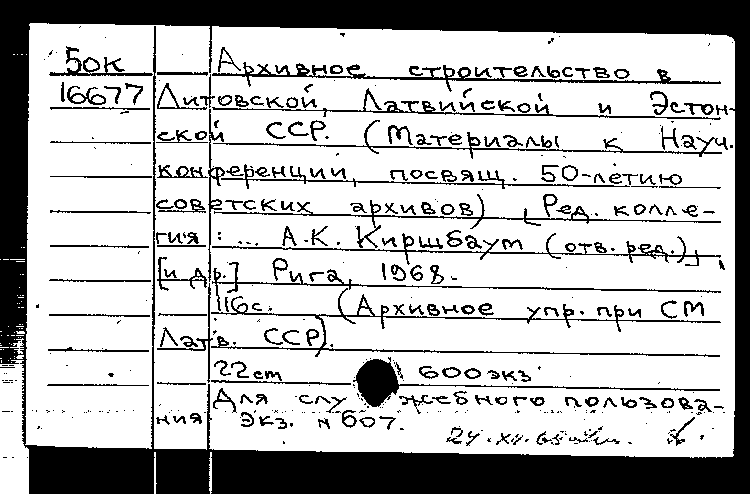 50к Архивное строительство в
16677 Литовской, Латвийской и Эстон-
ской ССР. (Материалы к Науч.
конференции, посвящ. 50-летию
советских архивов) [Ред. колле-
гия: ... А.К. Киршбаум (отв. ред.),
[и др.] Рига, 1968.
116с. (Архивное упр. при СМ
Латв. ССР).
22cm 600 экз
Для служебного пользова-
ния. Экз. №607.
24.XII.68